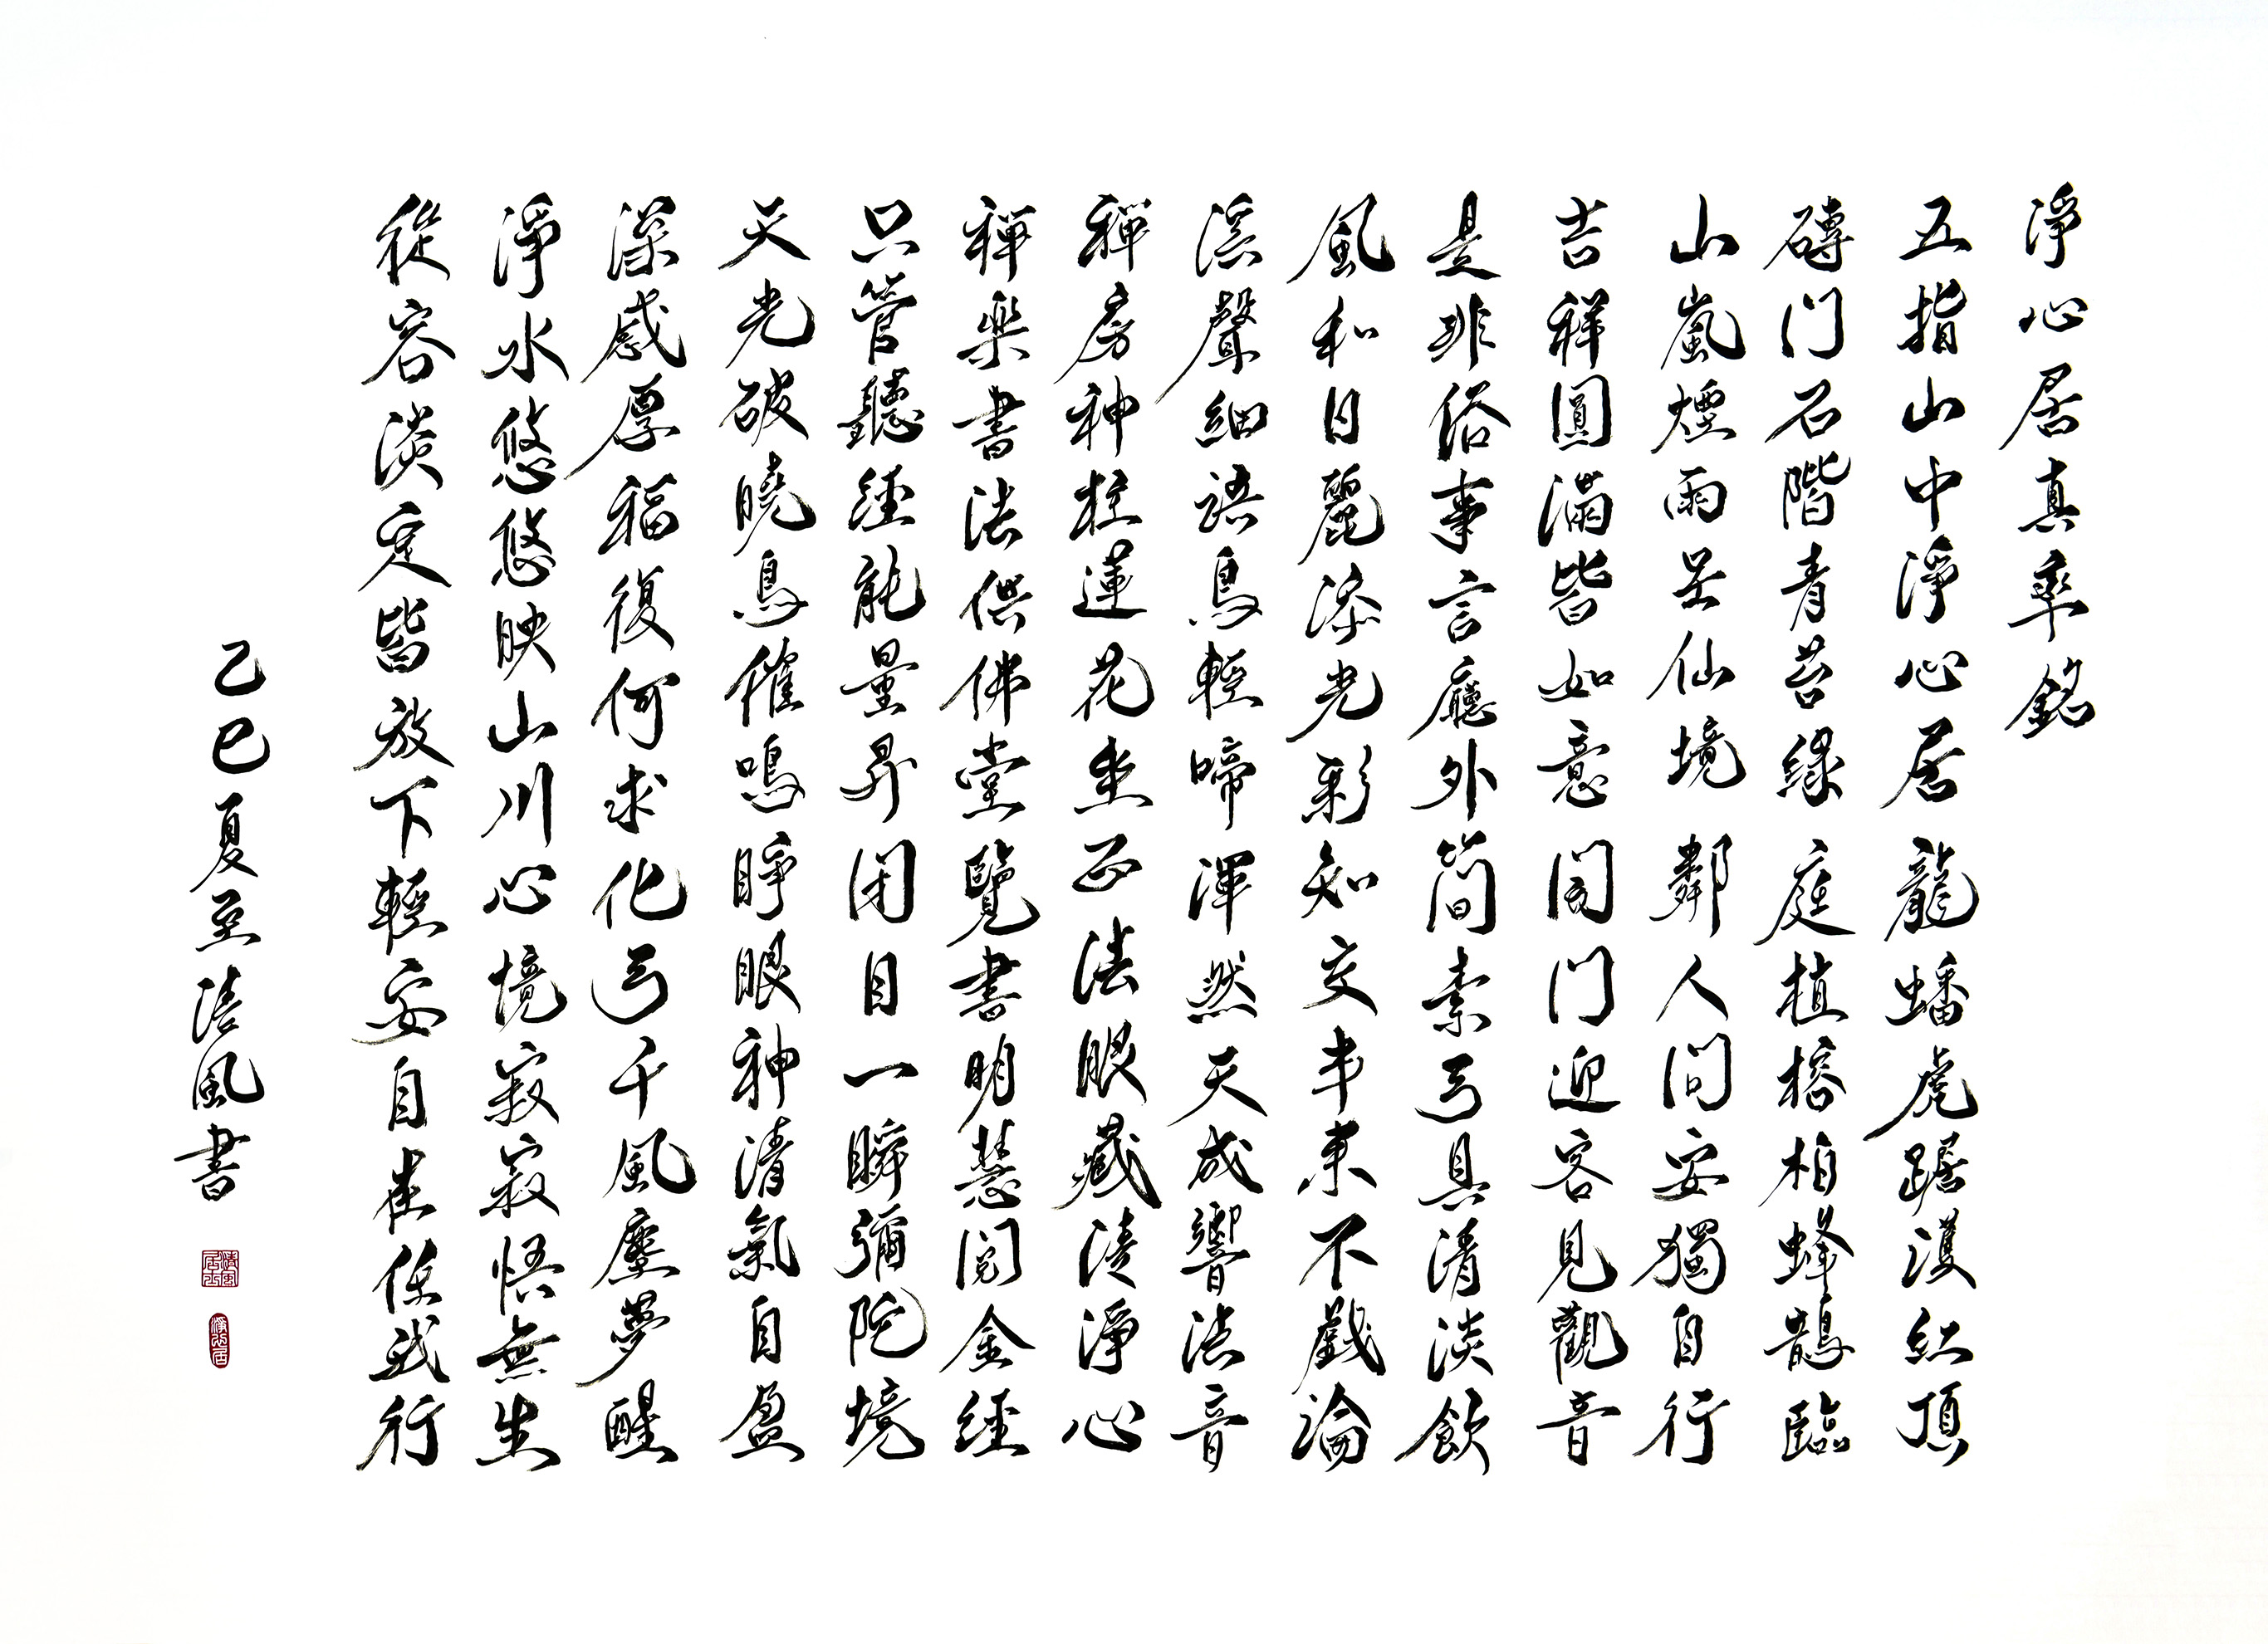 淨心居真率銘
五指山中淨心居龍蟠虎踞護紅頂
磚门石階青苔綠庭植榕柏蜂鵲臨
山嵐煙雨若仙境鄰人問安獨自行
吉祥圓滿皆如意開門迎客見觀音
是非俗事言廳外簡素為具清淡飲
風和日麗添光彩知交半來不戲論
溪聲細語鳥輕啼渾然天成響法音
禪房神柱蓮花坐正法眼藏清淨心
禪樂書法供佛堂覽書明慧閱金經
只管聽經能量昇闭目一瞬彌陀境
天光破曉鳥催鳴睜眼神清氣自盈
深感厚福復何求化為千風塵夢醒
淨水悠悠映山川心境寂寂悟無生
從容淡定皆放下輕安自在我行
己巳夏至清風書
清風居士
淨心居